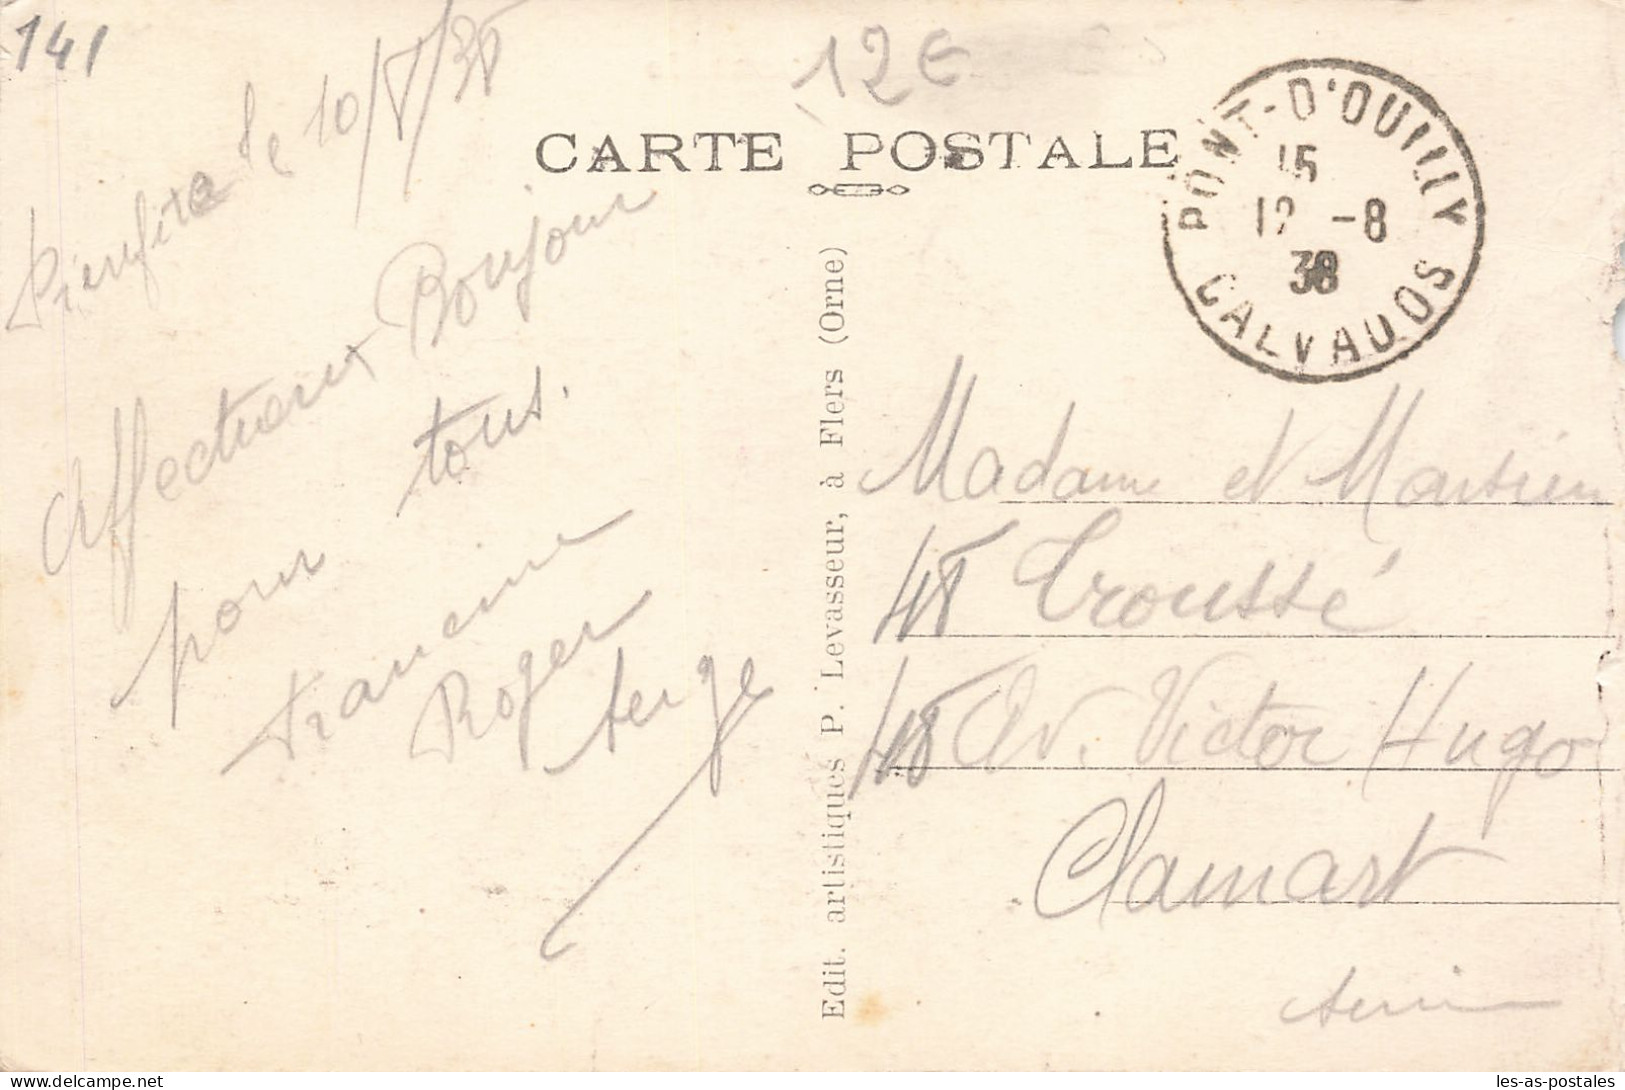 141
12€
Pierrefitte le 10/8/38
CARTE POSTALE
PONT-D'OUILLY
15
12 -8
38
CALVADOS
Affectueux Bonjour
pour tous.
Francine
Roger
Serge
Edit. artistiques P. Levasseur, à Flers (Orne)
Madame et Monsieur
48 Troussé
48 Av. Victor Hugo
Clamart
Seine
les-as-postales